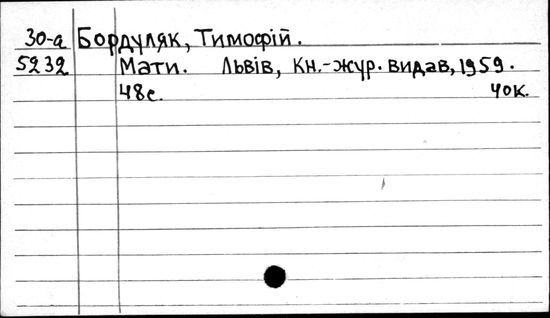 30-а Бордуляк, Тимофій.
5232 Мати. Львів, Кн.-жур. видав, 1959.
48с. 40к.